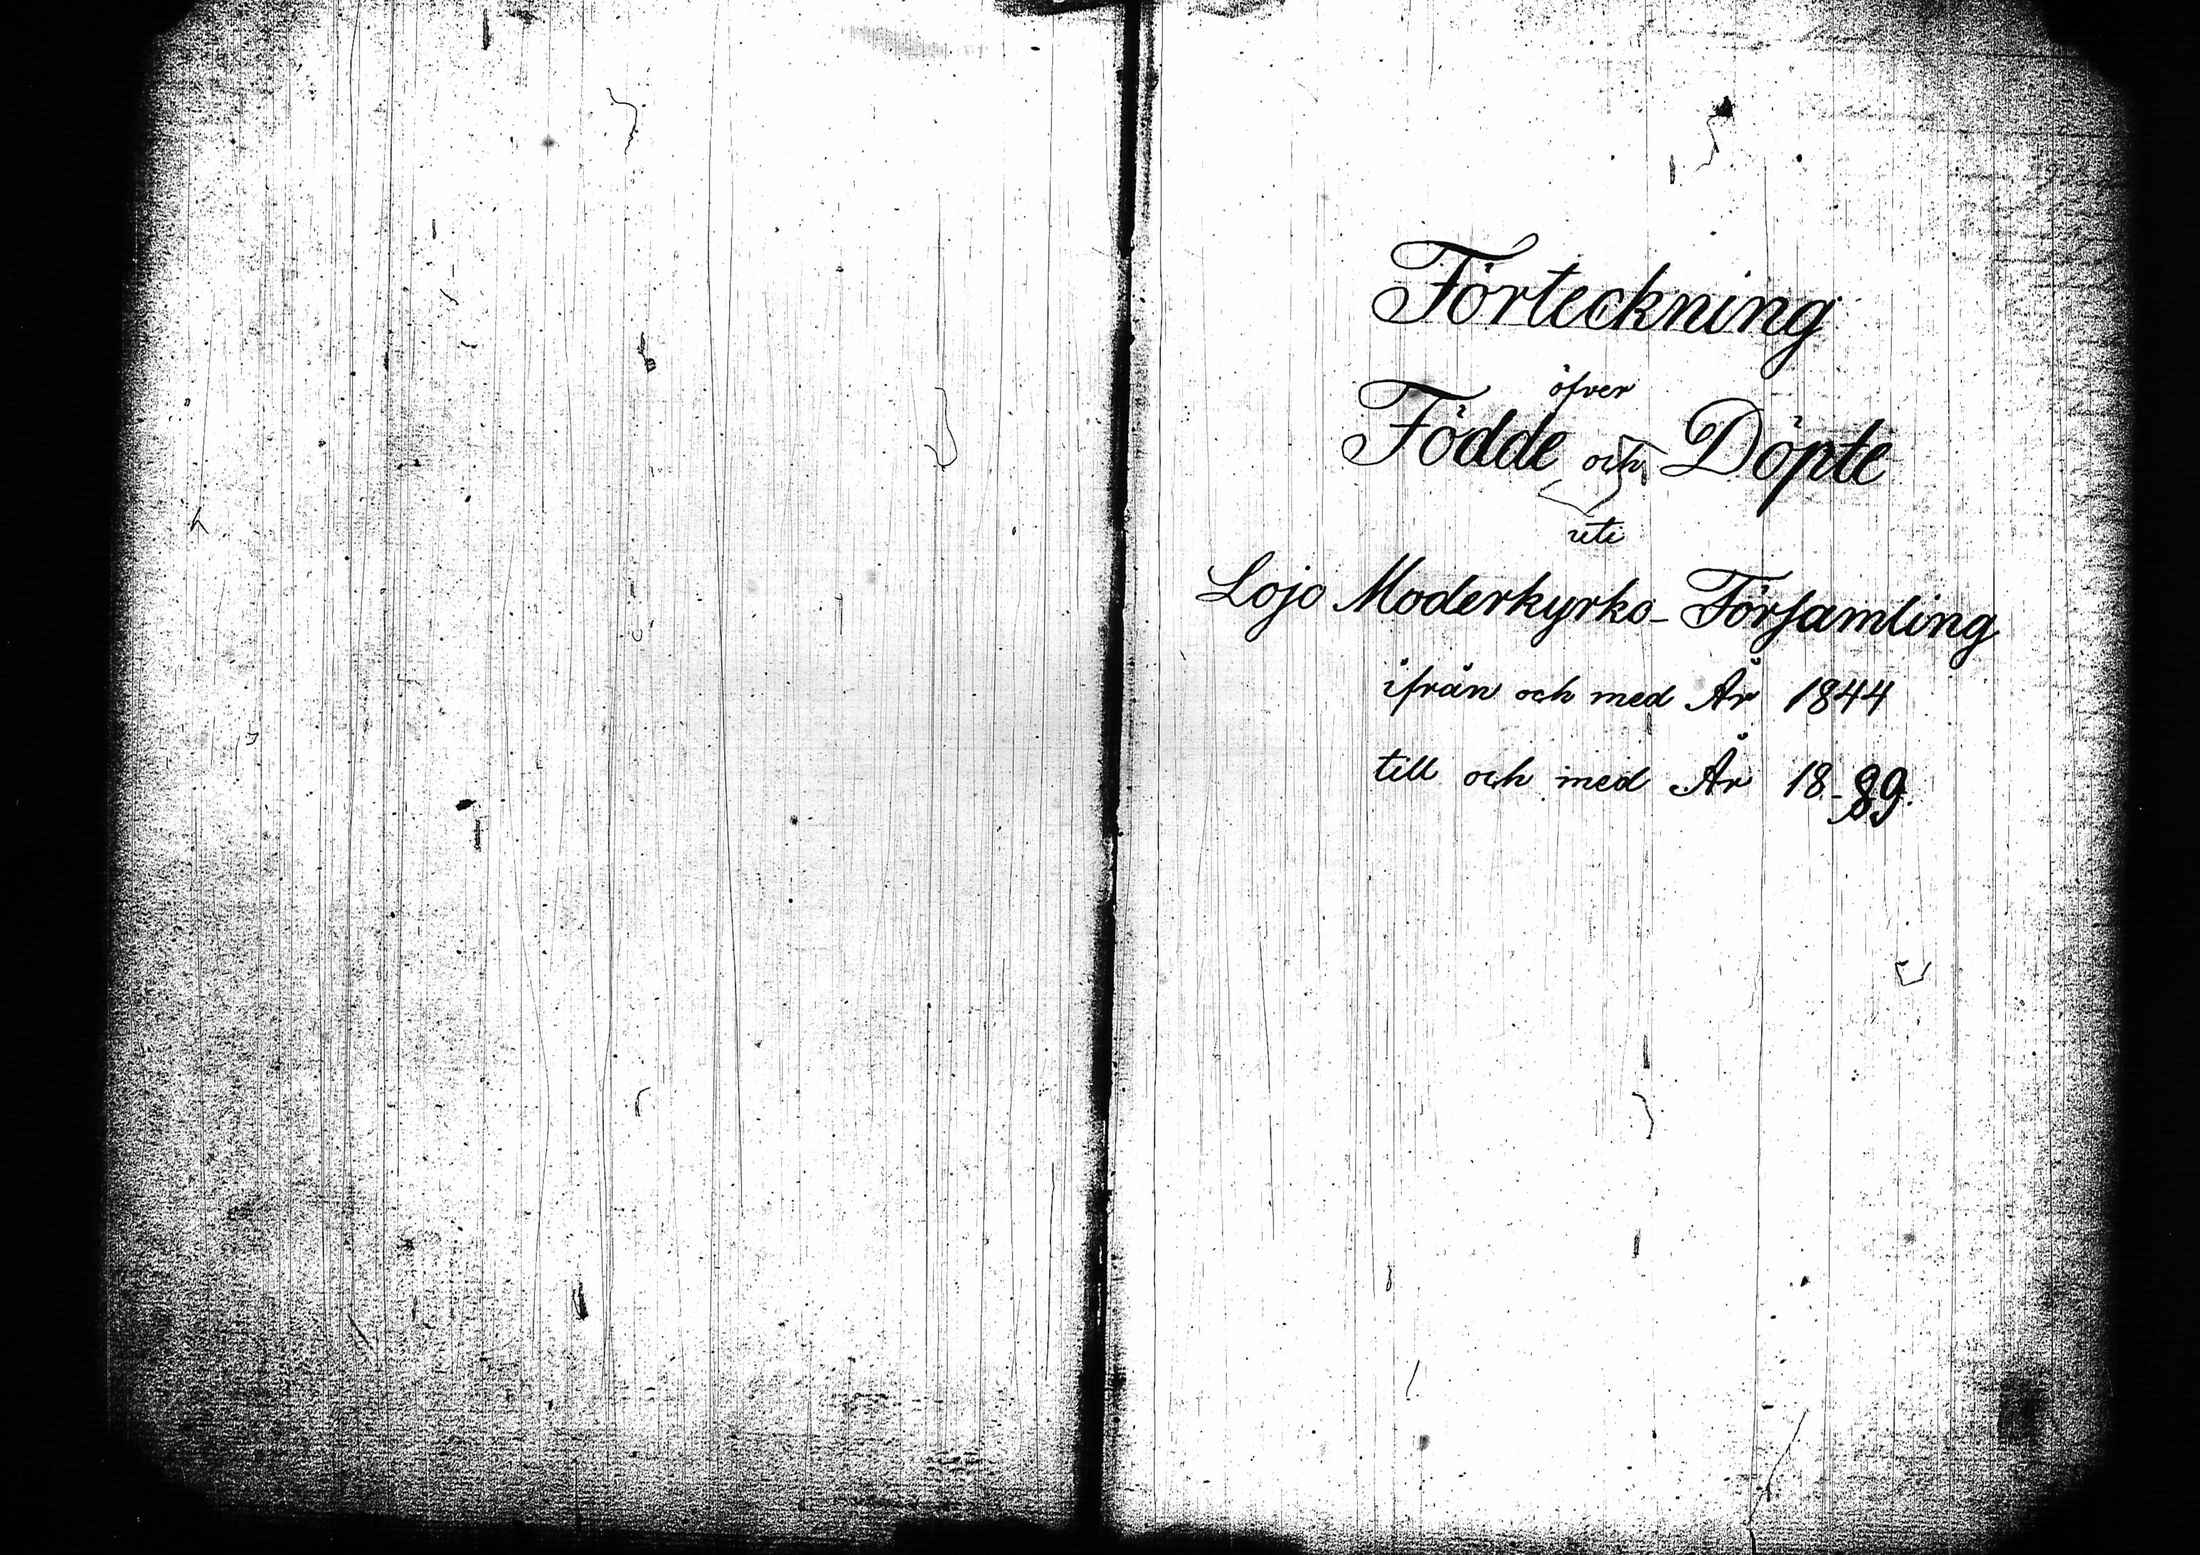 Förteckning
öfver
Födde och Döpte
uti
Lojo Moderkyrko-Församling
ifrån och med År 1844
till och med År 18-89.